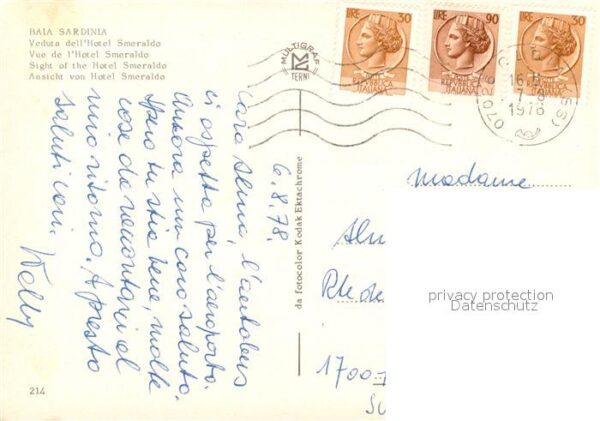 BAIA SARDINIA
Veduta dell'Hotel Smeraldo
Vue de l'Hotel Smeraldo
Sight of the Hotel Smeraldo
Ansicht von Hotel Smeraldo
MULTIGRAF
TERNI
LIRE 30
LIRE 90
LIRE 30
REPUBBLICA ITALIANA
REPUBBLICA ITALIANA
16-17
7-8
1978
07020
(SS)
6.8.78.
cara Alma, l'autobus
ci aspetta per l'aeroporto.
Ancora un caro saluto.
Spero tu stia bene, molte
cose da raccontarci al
mio ritorno. A presto
saluti cari.
da fotocolor Kodak Ektachrome
Madame
Rte de
1700
214
privacy protection
Datenschutz